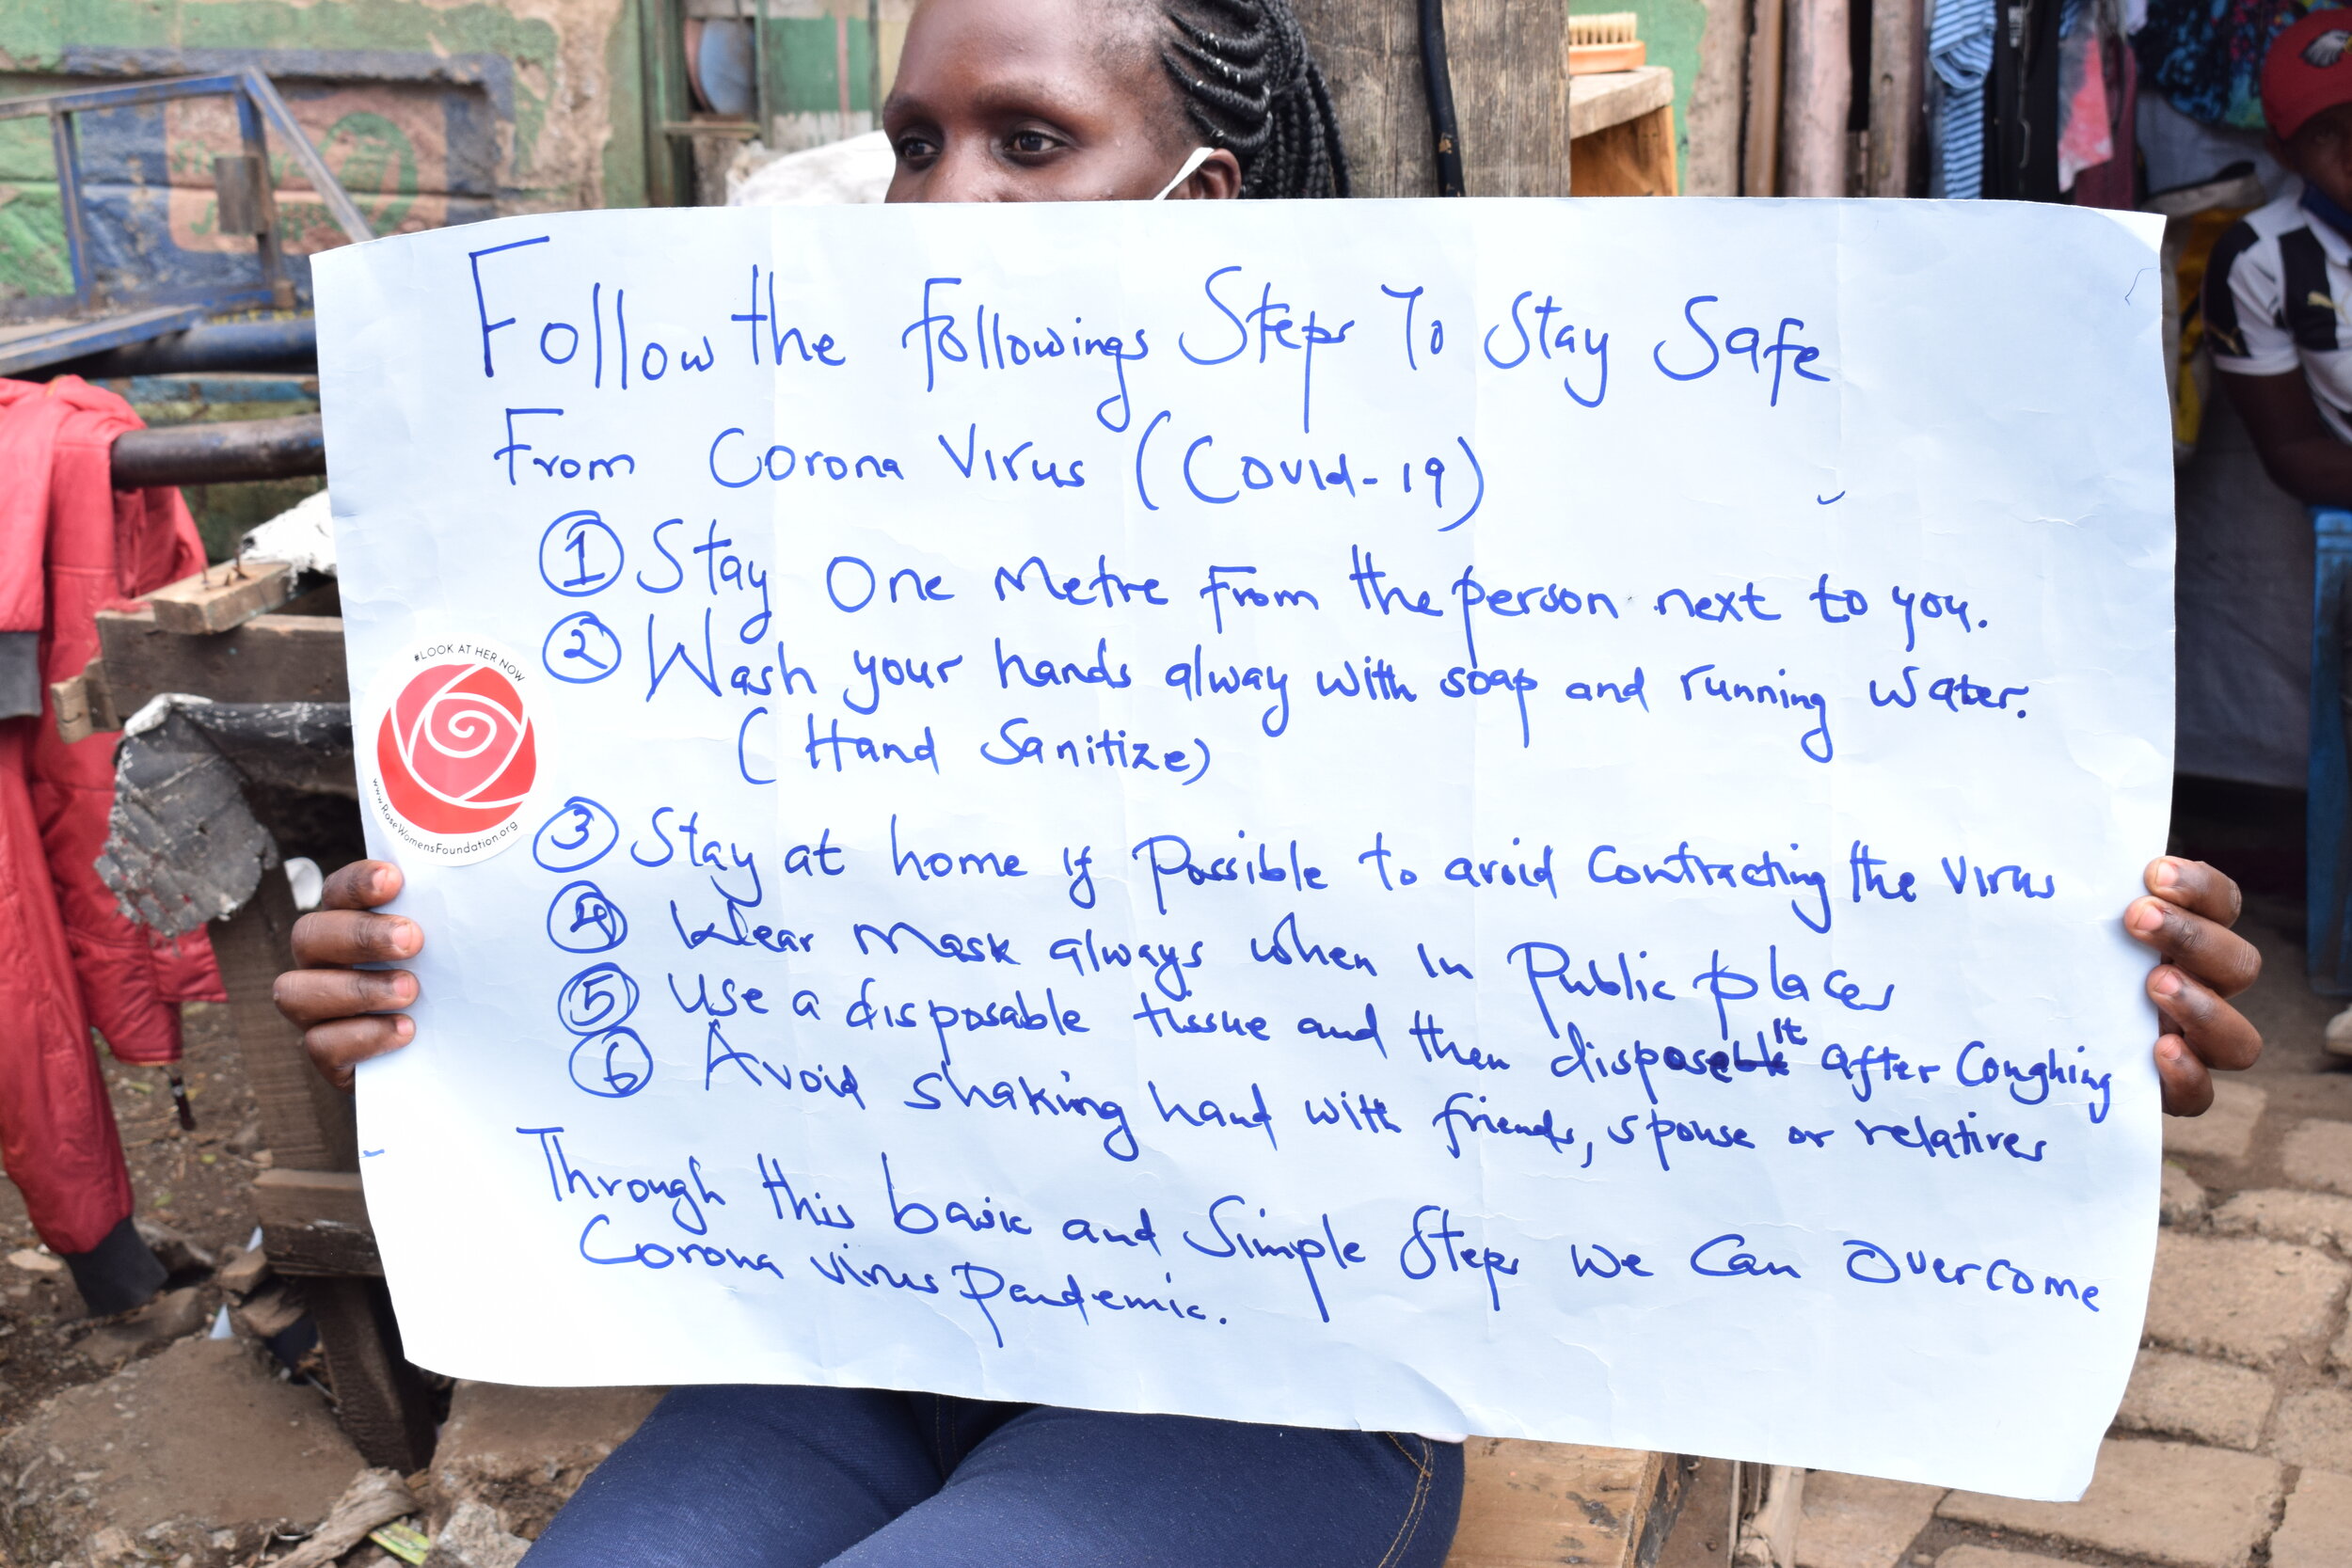 Follow the followings Steps To Stay Safe
From Corona Virus (Covid-19)
1 Stay One Metre From the person next to you.
2 Wash your hands alway with soap and running water.
(Hand Sanitize)
#LOOK AT HER NOW
www.RoseWomensFoundation.org
3 Stay at home if Possible to avoid contracting the virus
4 Wear Mask always when in Public places
5 Use a disposable tissue and then dispose it after Coughing
6 Avoid shaking hand with friends, spouse or relatives
Through this basic and Simple Steps we Can Overcome
Corona virus Pandemic.